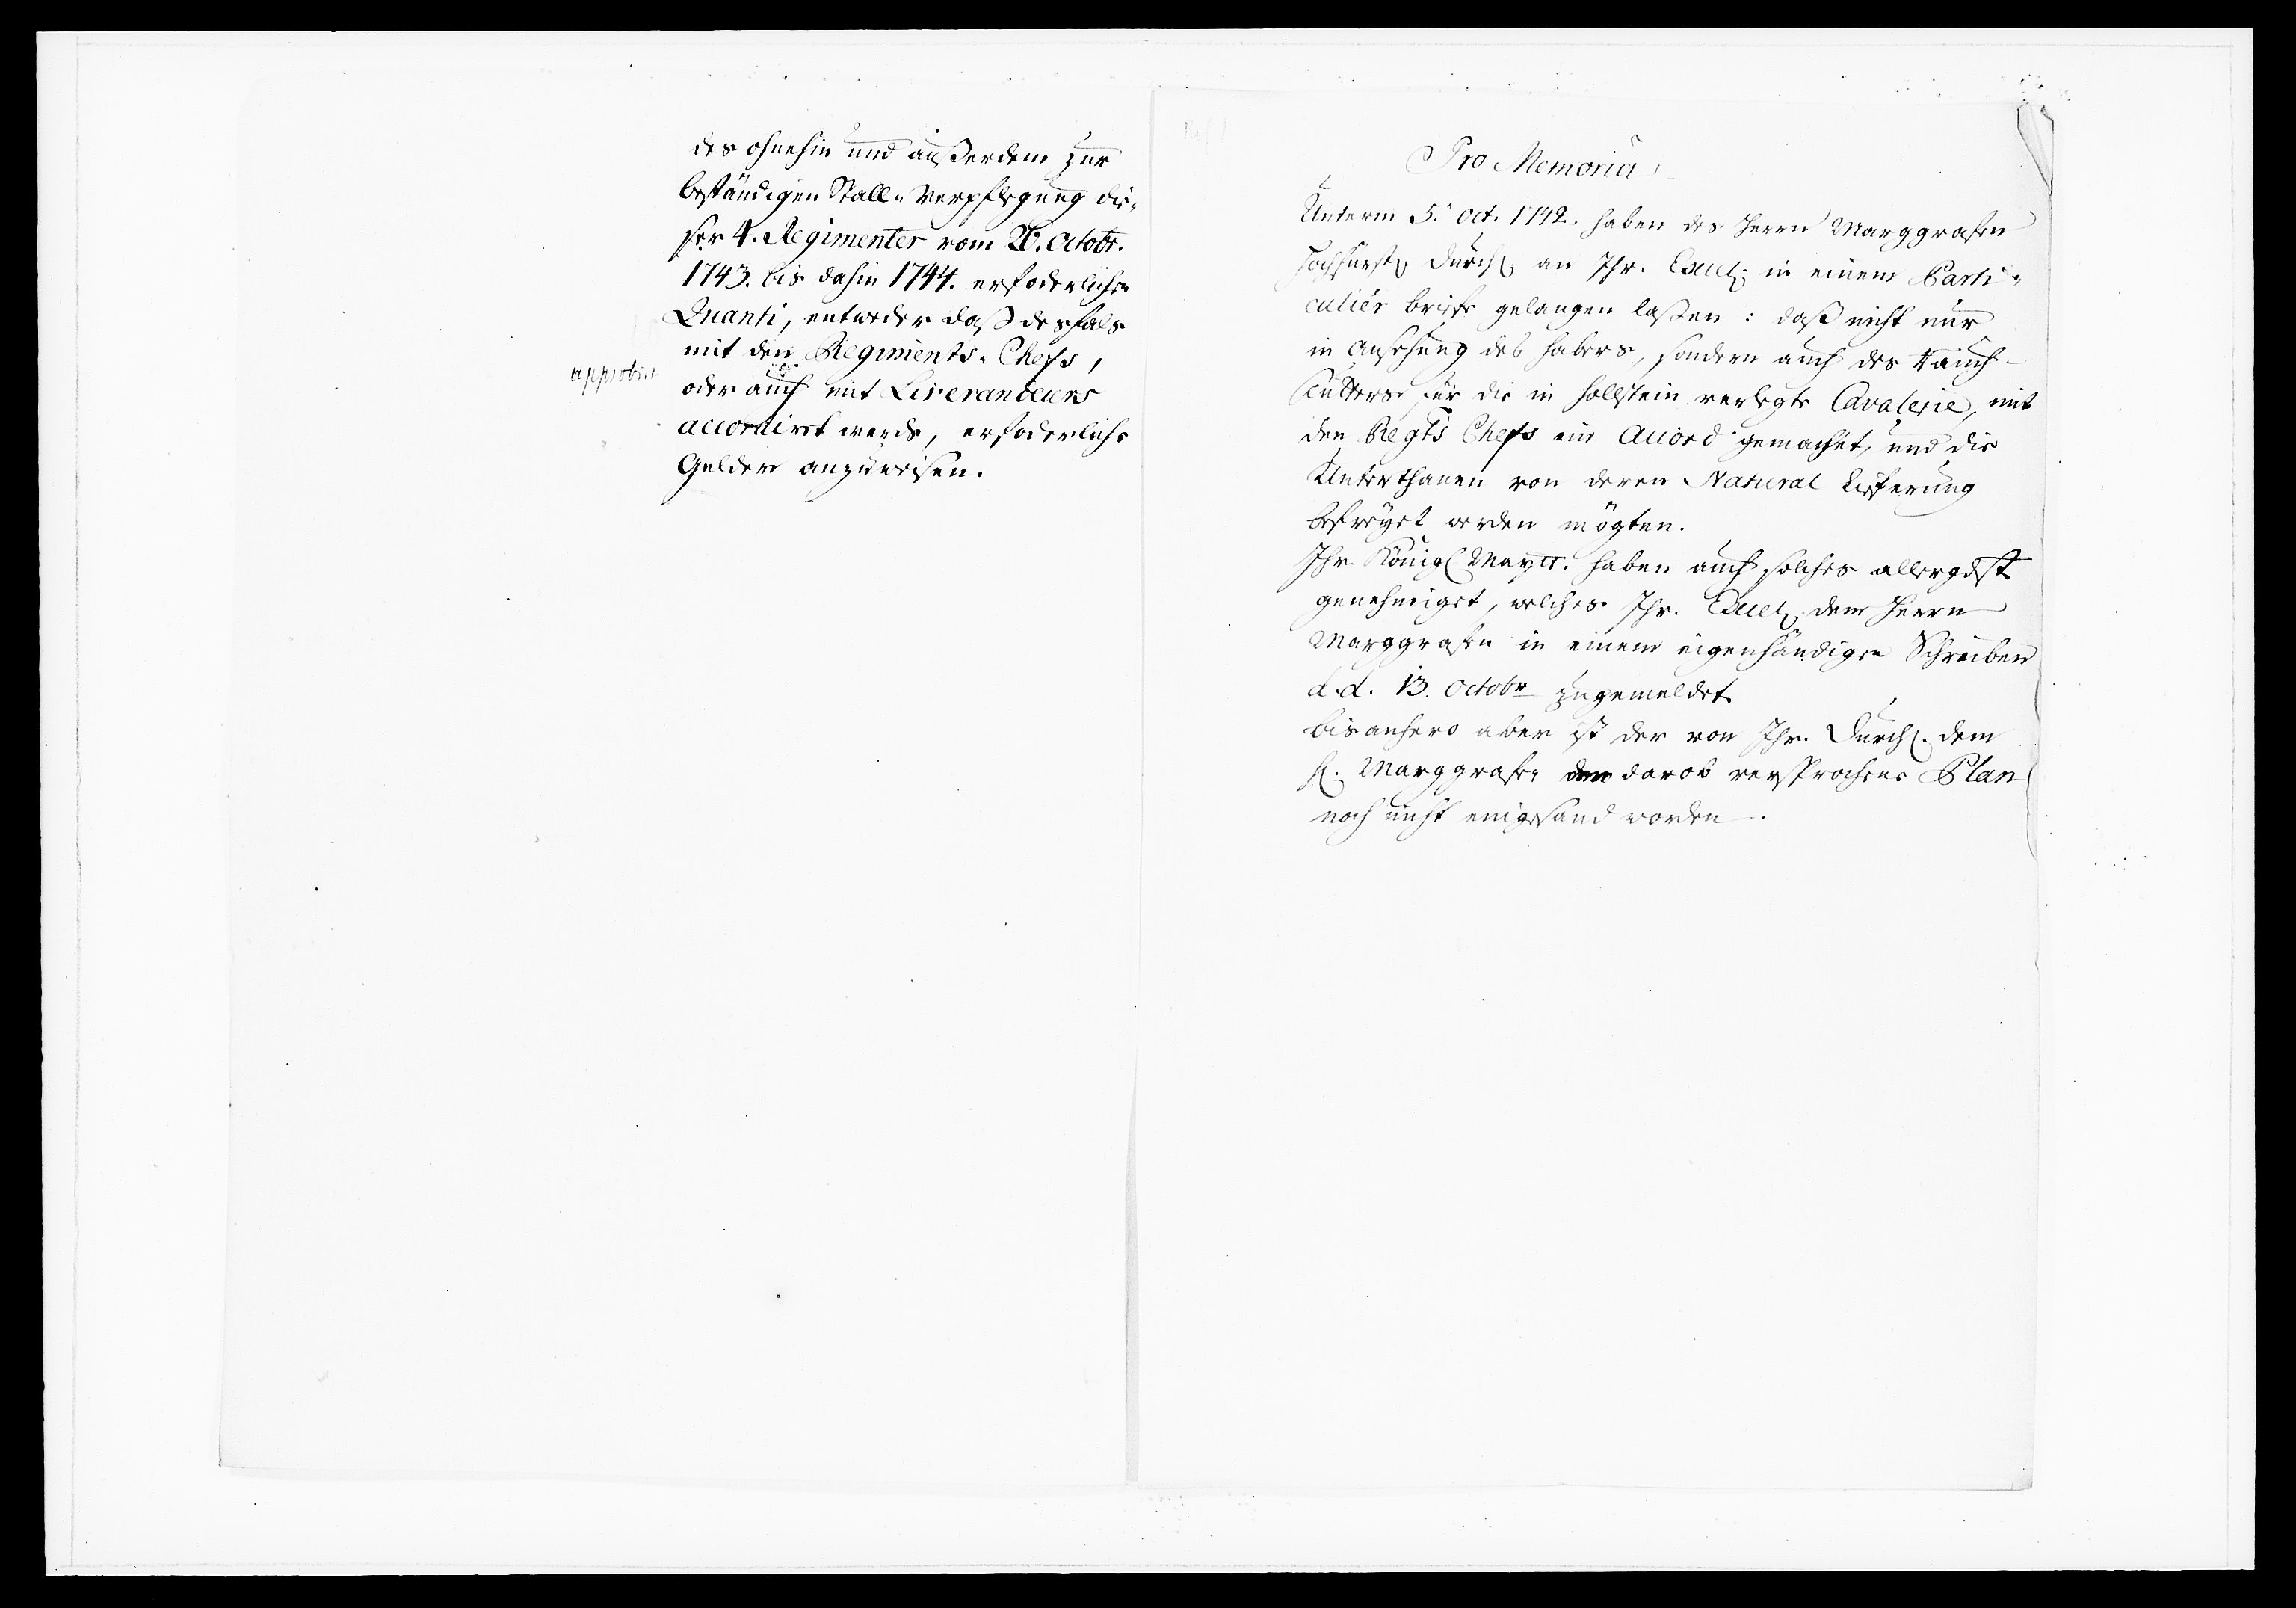 des ohnehin und außerdem zur
beständigen Stall-Verpflegung die-
ser 4. Regimenter vom Octobr.
1743. bis dahin 1744. erfoderlichen
Quanti, entweder daß desfals
mit den Regiments-Chefs,
approbirt
oder auch mit Liverandeurs
accordiret werde, erfoderliche
Gelder anzuweisen.
Pro Memoria.
Unterm 5. Oct. 1742. haben des Herrn Marggrafen
Hochfürstl. Durchl. an Ihr. Excell. in einem Parti-
culiér briefe gelangen laßen: daß nicht nur
in Ansehung des Habers, sondern auch des Rauch-
Futters für die in Hollstein verlegte Cavalerie, mit
den Regts Chefs ein Accord gemachet, und die
Unterthanen von deren Natural Lieferung
befreyet werden mögten.
Ihr Königl Maytt. haben auch solches allergdst
genehmiget, welches Ihr. Excell. dem Herrn
Marggrafen in einem eigenhändigen Schreiben
d.d. 13. Octobr zugemeldet.
bis anhero aber ist der von Ihr. Durchl. dem
H. Marggrafen darob versprochene Plan
noch nicht eingesand worden.